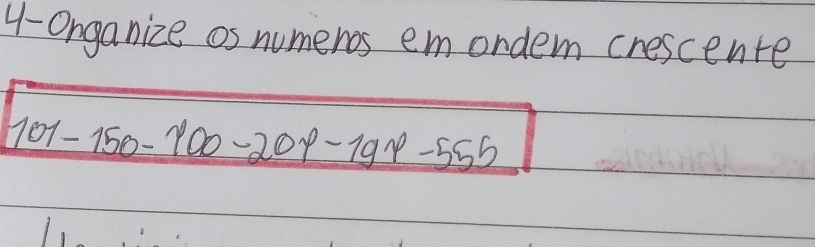 4- Organize os numeros em ordem crescente
101 - 150 - 900 - 209 - 199 - 555